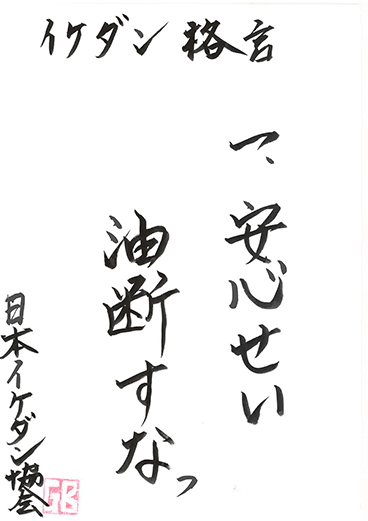 イケダン 格言
一、安心せい
油断すなっ
日本イケダン協会
GB